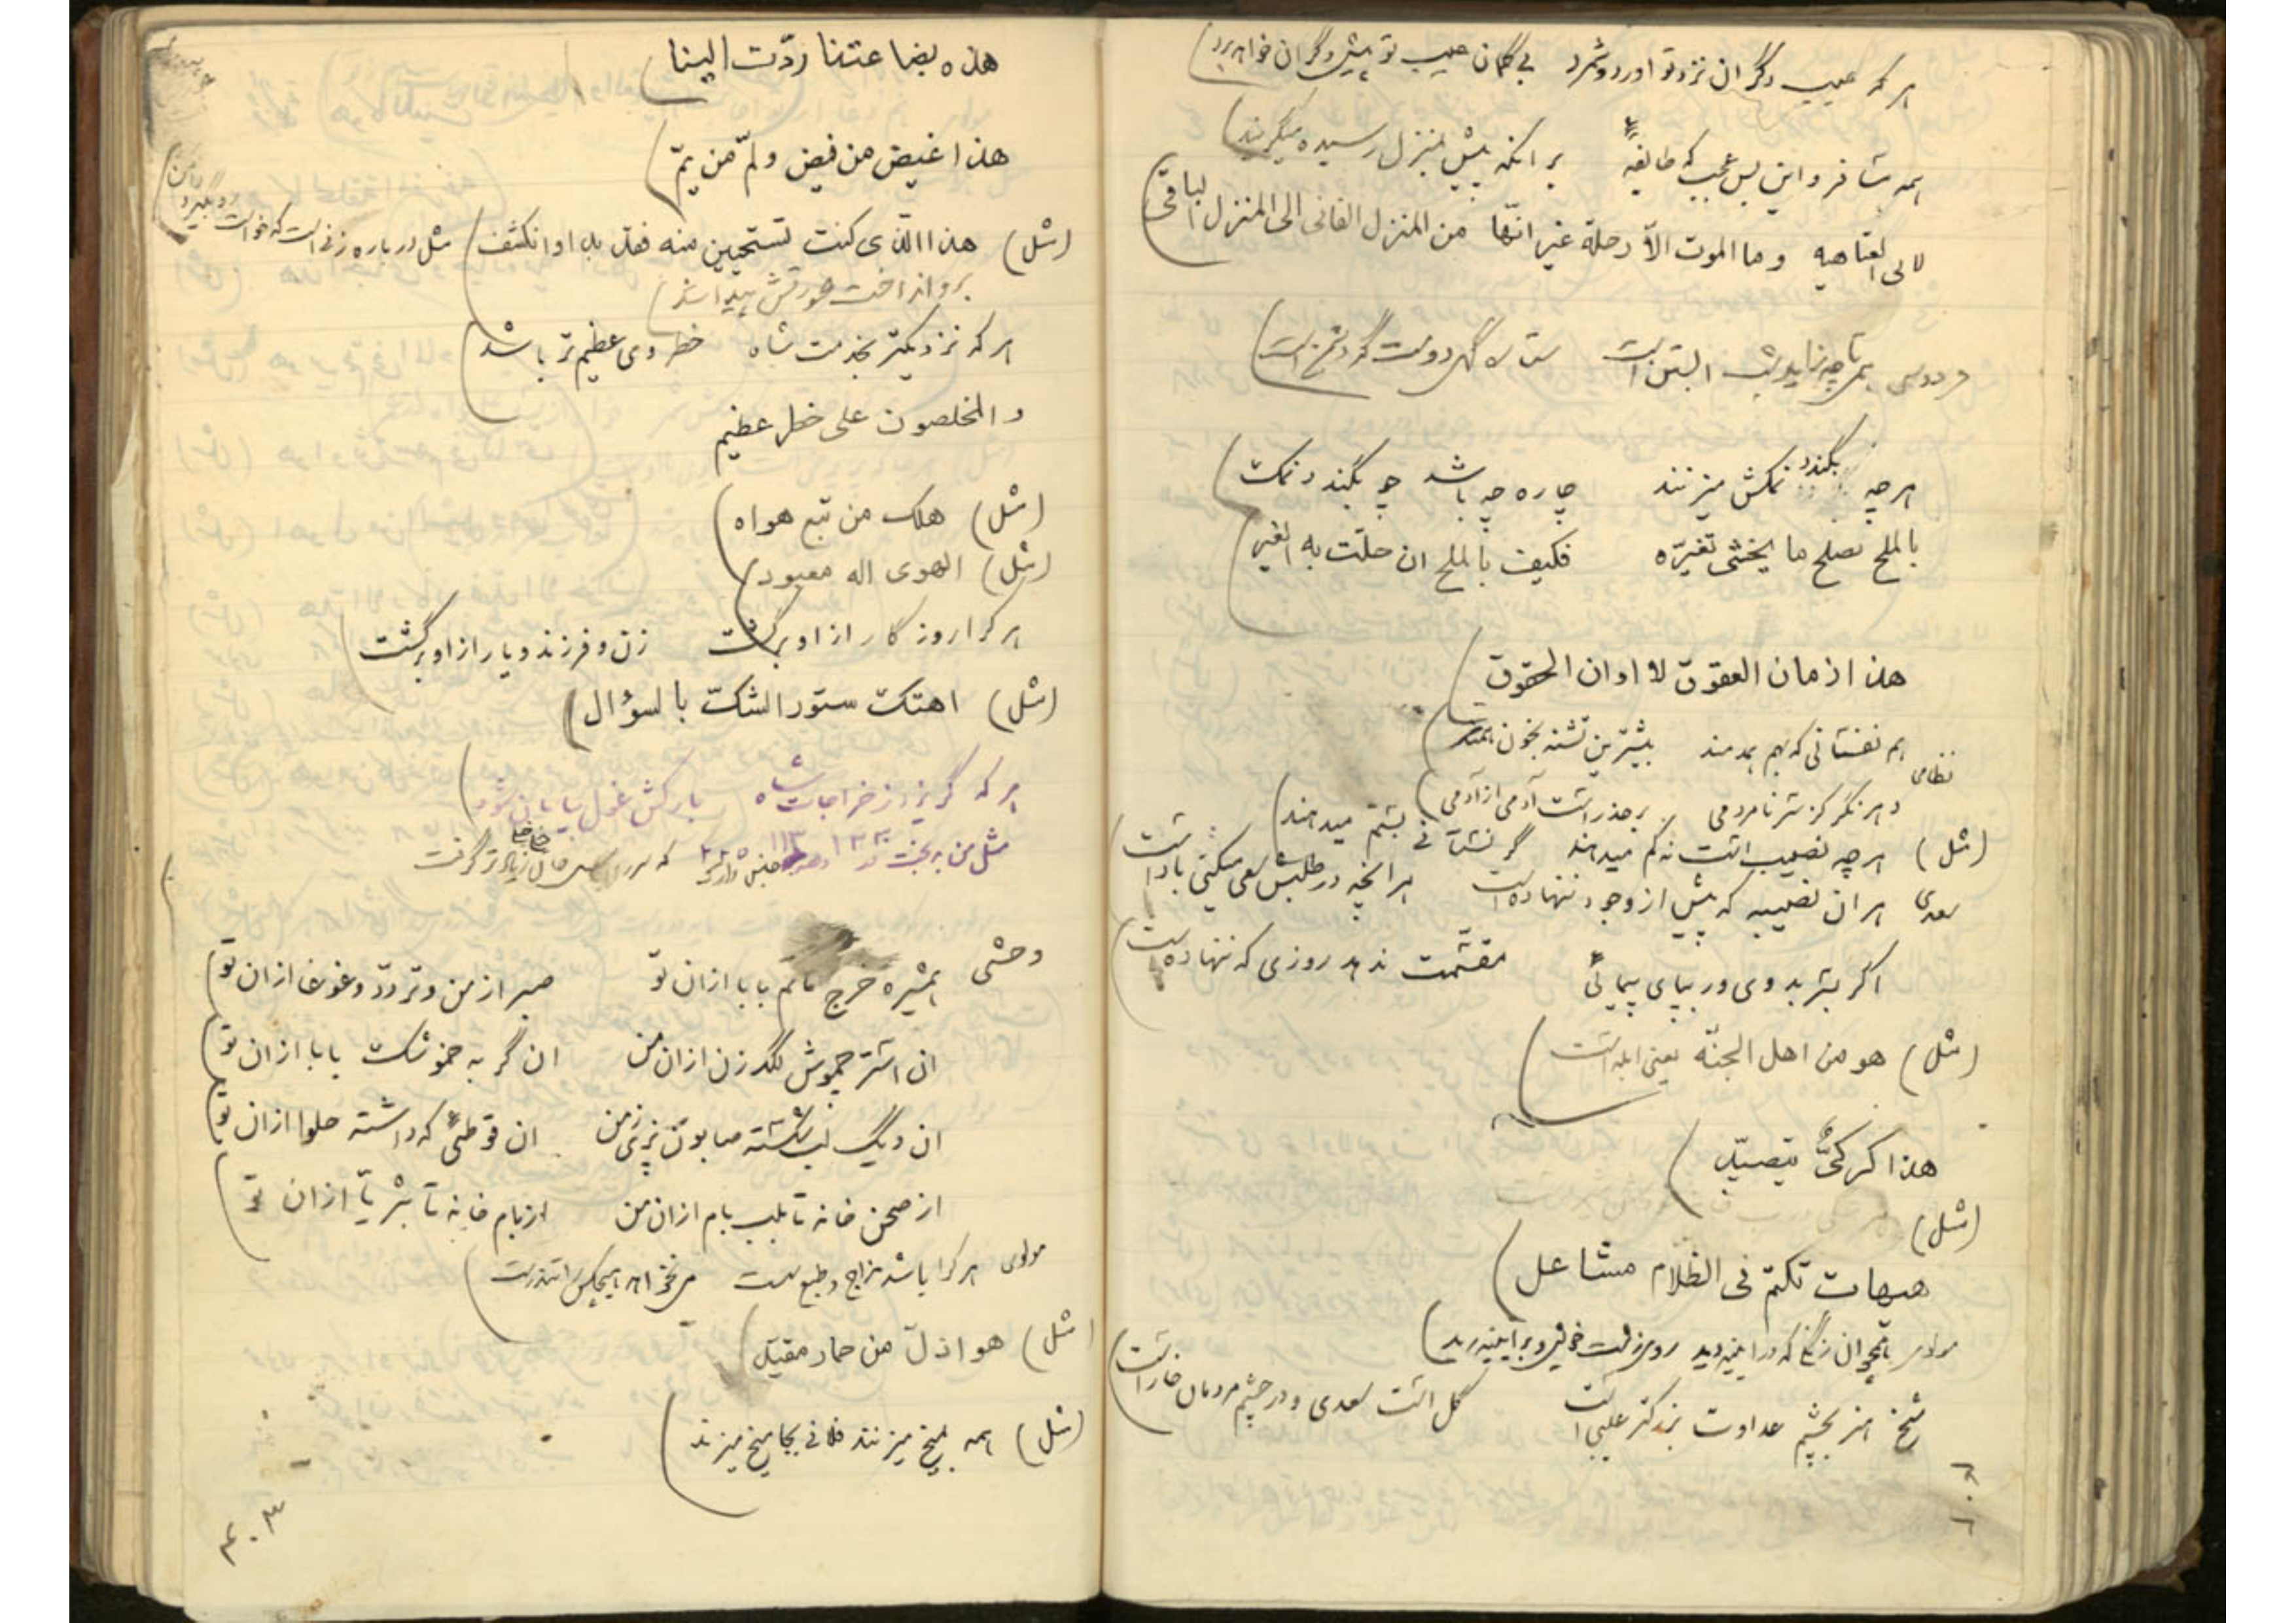 هر که عیب دگران نزد تو اورد و شمرد بی گمان عیب تو پیش دگران خواهد برد
همه مسافر و این بس عجب که طایفهٔ بر انکه پیش بمنزل رسیده میگریند
لابی العتاهیه وما الموت الاّ رحلة غیر انّها من المنزل الفانی الی المنزل الباقی
فردوسی
هر چه بگندد نمکش میزنند چاره چه باشد چو بگندد نمک
بالملح نصلح ما یخشی تغیّره فکیف بالملح ان حلّت به الغیر
هذا زمان العقوق لا اوان الحقوق
نظامی هم نفسانی که بهم همدمند بیشترین تشنه بخون همند
بر حذر است آدمی از آدمی
(مثل) هر چه نصیب است نه کم میدهند گر نستانی بستم میدهند
سعدی هر ان نصیبه که پیش از وجود ننهاده است هر انچه در طلبش سعی میکنی باد است
اگر بشر بدوی ور بپای پیمائی مقسّمت ندهد روزی که ننهاده است
(مثل) هو من اهل الجنّة یعنی ابله است
هذا کرکیّ یتصیّد
(مثل)
هیهات تکتم فی الظلام مشاعل
مولوی همچو ان زنگی که در ایینه دید روی زشت خویش و بر ایینه رید
شیخ هنر بچشم عداوت بزرگتر عیبی است گل است سعدی و در چشم مردمان خار است
۴۰۲
هذه بضاعتنا ردّت الینا
هذا غیض من فیض ولمّ من یمّ
(مثل) هذا الذی کنت تستحیین منه فقد بدا وانکشف مثل در باره زنی است که خواست رو بگیرد دامن
بر وا انداخت عورتش پیدا شد
هر که نزدیکتر بخدمت شاه خطر وی عظیم تر باشد
والمخلصون علی خطر عظیم
(مثل) هلک من تبع هواه
(مثل) الهوی اله معبود
هر کرا روزگار از او برگشت زن و فرزند و یار از او برگشت
(مثل) اهتک ستور الشک بالسؤال
هر که گریزد ز خراجات شاه بارکش غول بیابان شود
مثل من بدبخت
وحشی همشیره خرج ماتم بابا ازان تو صبر از من و تردّد و غوغا ازان تو
ان استر چموش لگد زن ازان من ان گربه بابا ازان تو
ان دیگ لب شکسته صابون پزی ز من ان که داشته حلوا ازان تو
از صحن خانه تا بلب بام ازان من از بام خانه تا بثریّا ازان تو
مولوی هر کرا باشد مزاج و طبع سست می نخواهد هیچکس را تندرست
(مثل) هو اذلّ من حمار مقیّد
(مثل) همه بمیخ میزنند فلانی بجا میخ میزند
۴۰۳